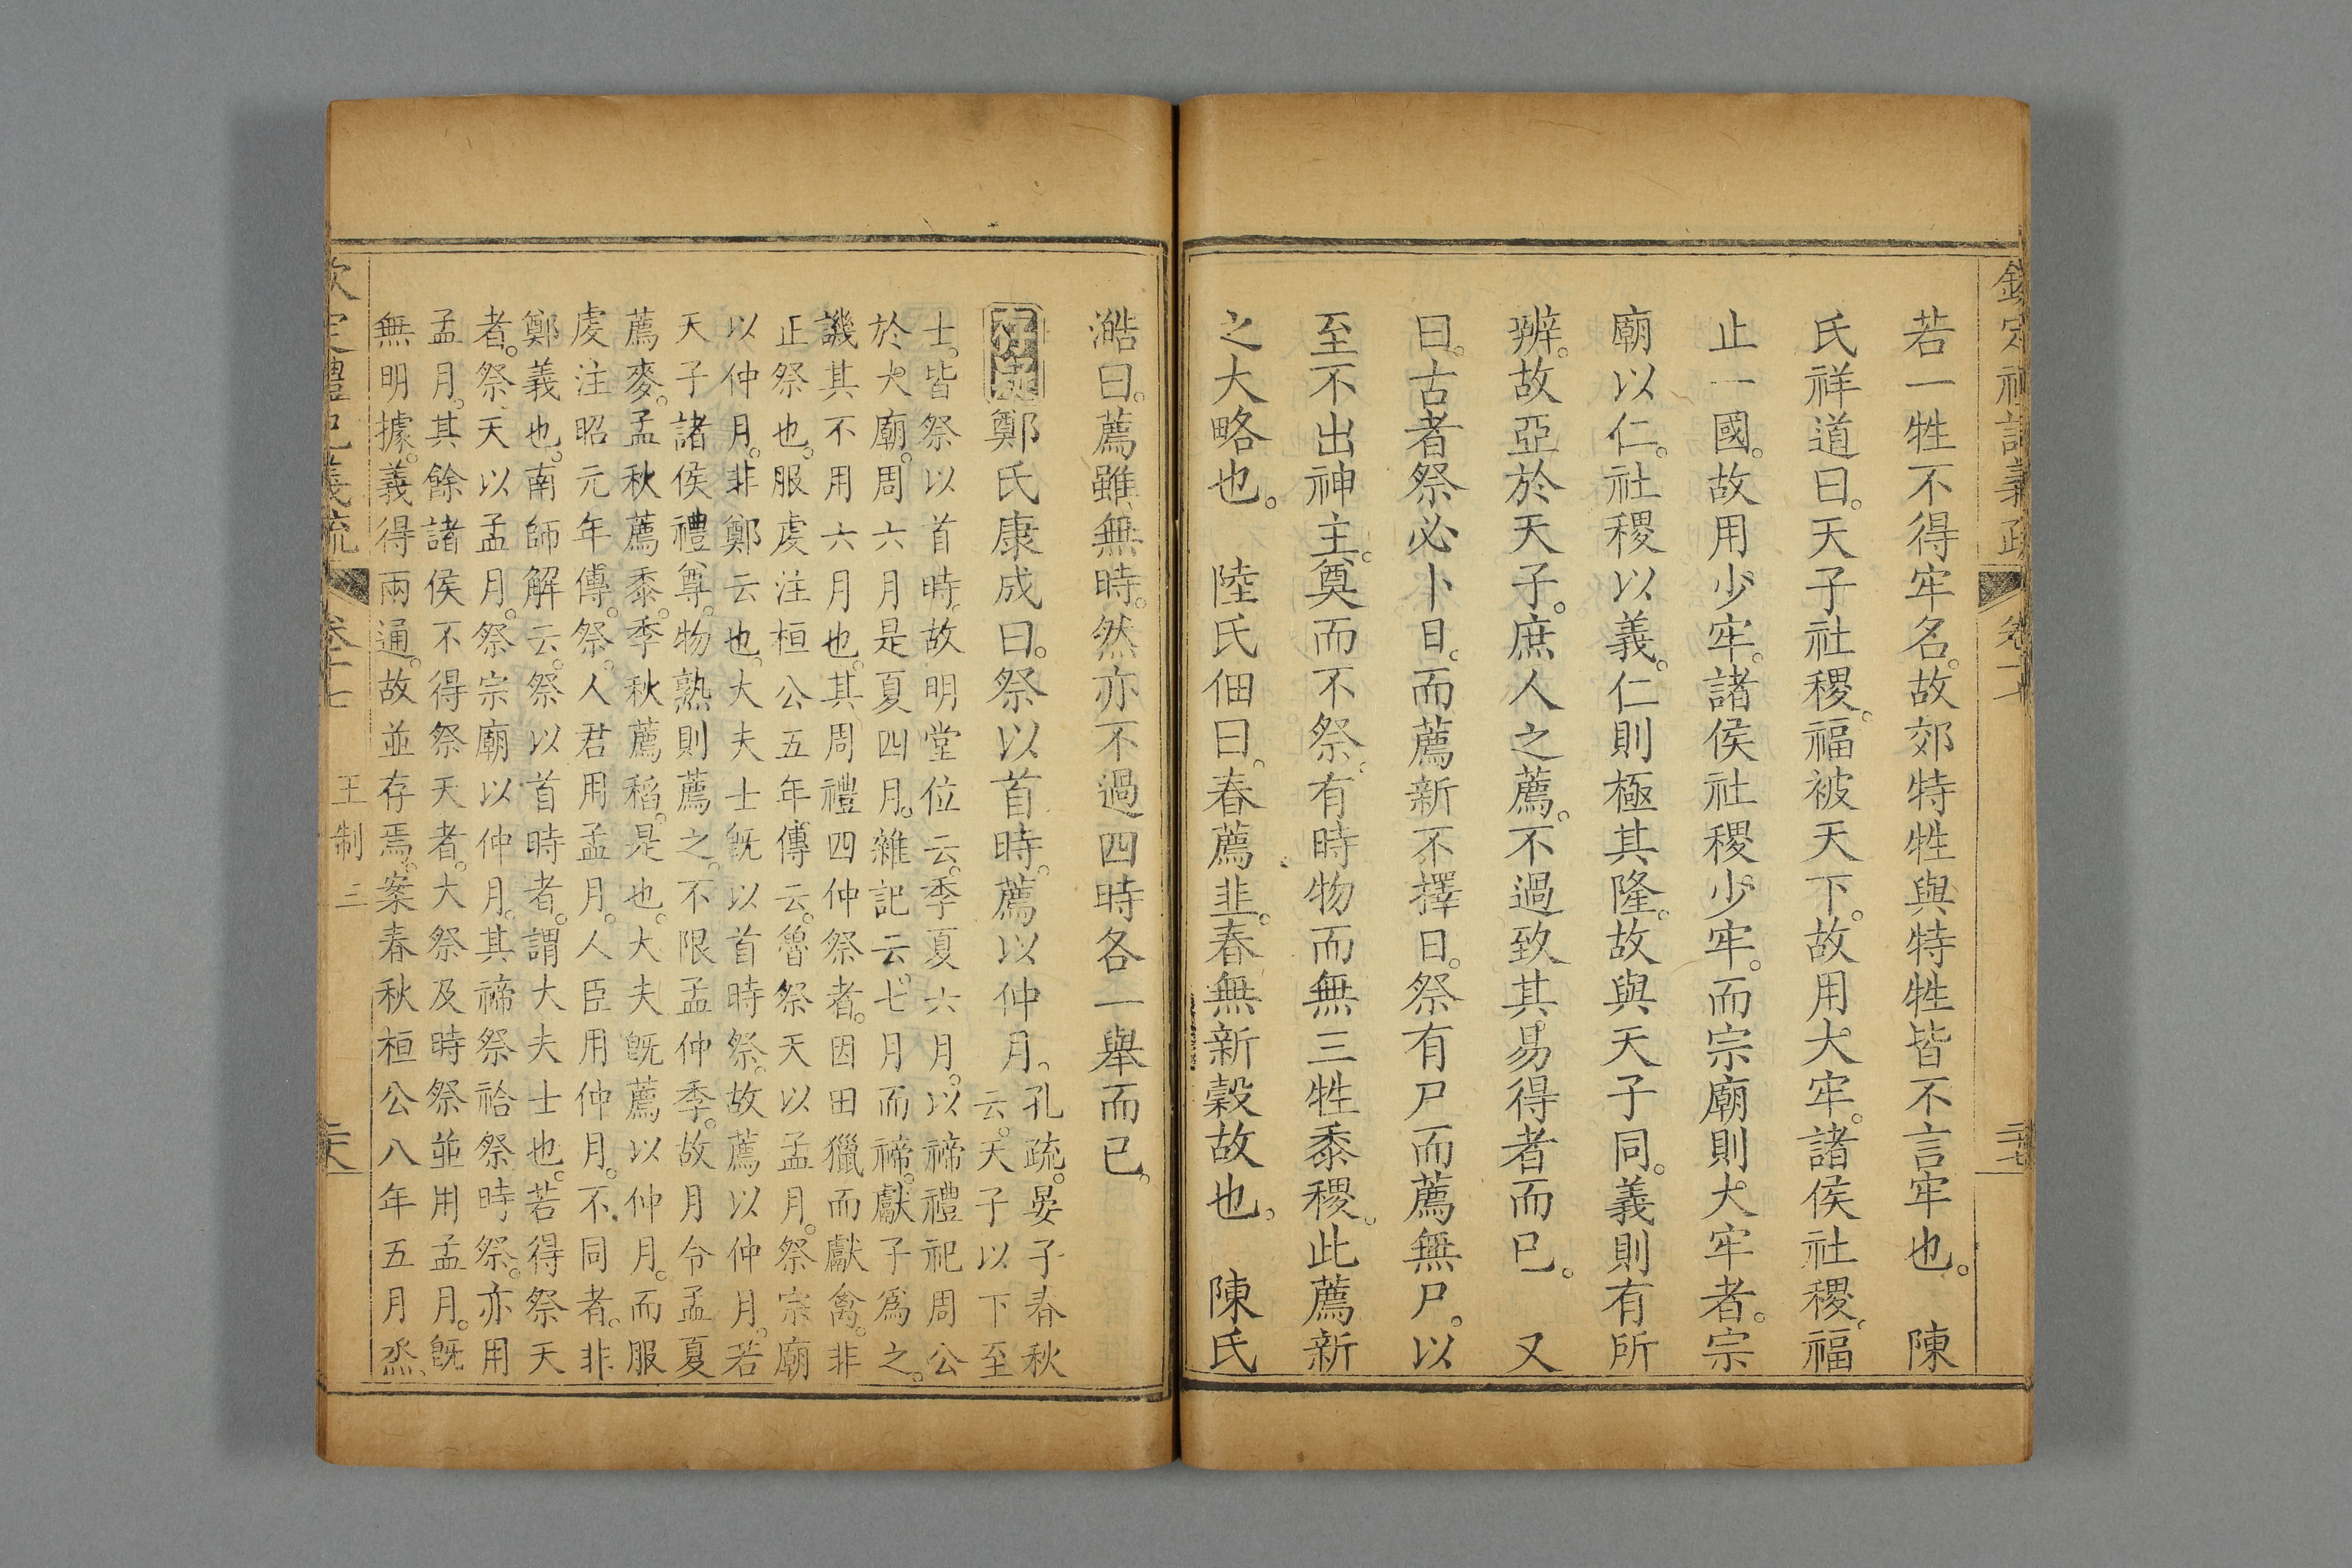 若一牲不得牢名。故郊特牲與特牲皆不言牢也。　陳
氏祥道曰。天子社稷。福被天下。故用大牢。諸侯社稷。福
止一國。故用少牢。諸侯社稷少牢。而宗廟則大牢者。宗
廟以仁。社稷以義。仁則極其隆。故與天子同。義則有所
辨。故亞於天子。庶人之薦。不過致其易得者而已。　又
曰。古者祭必卜日。而薦新不擇日。祭有尸而薦無尸。以
至不出神主。奠而不祭。有時物而無三牲黍稷。此薦新
之大略也。　陸氏佃曰。春薦韭。春無新穀故也。　陳氏
澔曰。薦雖無時。然亦不過四時各一舉而已。
鄭氏康成曰。祭以首時。薦以仲月。
孔疏。晏子春秋
云。天子以下至
士。皆祭以首時。故明堂位云。季夏六月。以禘禮祀周公
於大廟。周六月是夏四月。雜記云。七月而禘。獻子爲之。
譏其不用六月也。其周禮四仲祭者。因田獵而獻禽。非
正祭也。服虔注桓公五年傳云。魯祭天以孟月。祭宗廟
以仲月。非鄭云也。大夫士旣以首時祭。故薦以仲月。若
天子諸侯禮尊。物熟則薦之。不限孟仲季。故月令孟夏
薦麥。孟秋薦黍。季秋薦稻。是也。大夫旣薦以仲月。而服
虔注昭元年傳。祭。人君用孟月。人臣用仲月。不同者。非
鄭義也。南師解云。祭以首時者。謂大夫士也。若得祭天
者。祭天以孟月。祭宗廟以仲月。其禘祭祫祭時祭。亦用
孟月。其餘諸侯不得祭天者。大祭及時祭並用孟月。旣
無明據。義得兩通。故並存焉。案春秋桓公八年五月烝、
欽定禮記義疏　卷十七　王制三　二十八